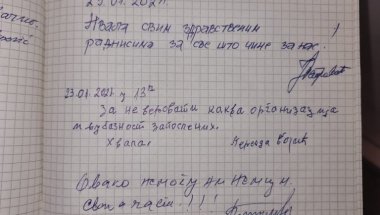 29.01.2021.
Хвала свим здравственим
радницима за све што чине за нас. !
23.01.2021. у 13
За не веровати каква организација
и љубазност запослених.
Хвала!
Овако не могу ни Немци.
Свака част!!!